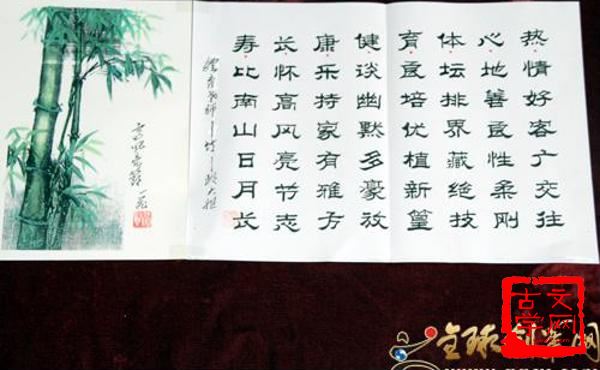 热情好客广交往
心地善良性柔刚
体坛排界藏绝技
育良培优植新篁
健谈幽默多豪放
康乐持家有雅方
长怀高风亮节志
寿比南山日月长
古文学网